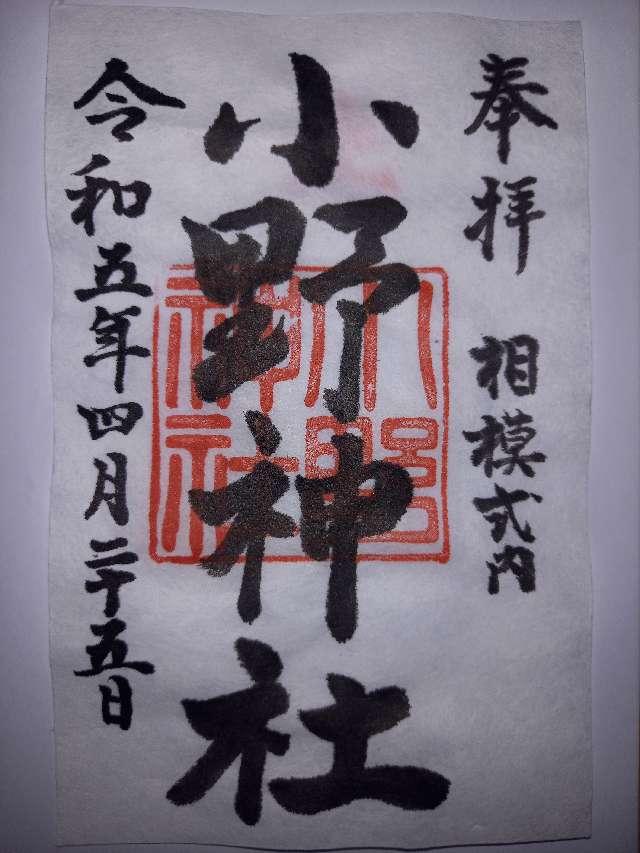 奉拝 相模式内
小野神社
小野神社
令和五年四月二十五日